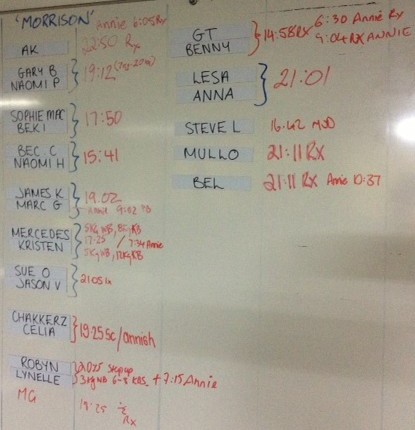 'MORRISON' Annie 6:05Rx
AK 22:50 Rx
GARY B
NAOMI P 19:12
SOPHIE MAC
BEK I 17:50
BEC. C
NAOMI H 15:41
JAMES K
MARC G 19.02
9:02
MERCEDES
KRISTEN 17:25 / 7:34 Annie
SUE O
JASON V 21:05
CHAKKERZ
CELIA 19:25 Sc/annish
ROBYN
LYNELLE 20:25 Step up
+ 7:15 Annie
MG 19:25
Rx
GT
BENNY 14:58RX 6:30 Annie Rx
9:04 RX ANNIE
LESA
ANNA 21:01
STEVE L 16:42 MOD
MULLO 21:11 RX
BEL 21:11 RX Annie 10:37